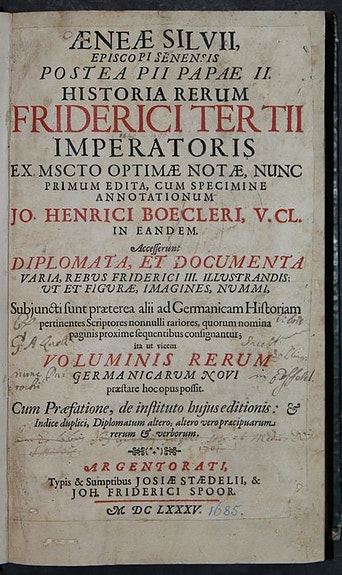 ÆNEÆ SILVII,
EPISCOPI SENENSIS
POSTEA PII PAPAE II.
HISTORIA RERUM
FRIDERICI TERTII
IMPERATORIS
EX MSCTO OPTIMÆ NOTÆ, NUNC
PRIMUM EDITA, CUM SPECIMINE
ANNOTATIONUM
JO. HENRICI BOECLERI, V. CL.
IN EANDEM.
Accesserunt
DIPLOMATA, ET DOCUMENTA
VARIA, REBUS FRIDERICI III. ILLUSTRANDIS:
UT ET FIGURÆ, IMAGINES, NUMMI,
Subjuncti sunt præterea alii ad Germanicam Historiam
pertinentes Scriptores nonnulli rariores, quorum nomina
paginis proxime sequentibus consignantur;
ita ut vicem
VOLUMINIS RERUM
GERMANICARUM NOVI
præstare hoc opus possit.
Cum Præfatione, de instituto hujus editionis: &
Indice duplici, Diplomatum altero, altero vero præcipuarum
rerum & verborum.
ARGENTORATI,
Typis & Sumptibus JOSIÆ STÆDELII, &
JOH. FRIDERICI SPOOR.
M DC LXXXV. 1685.